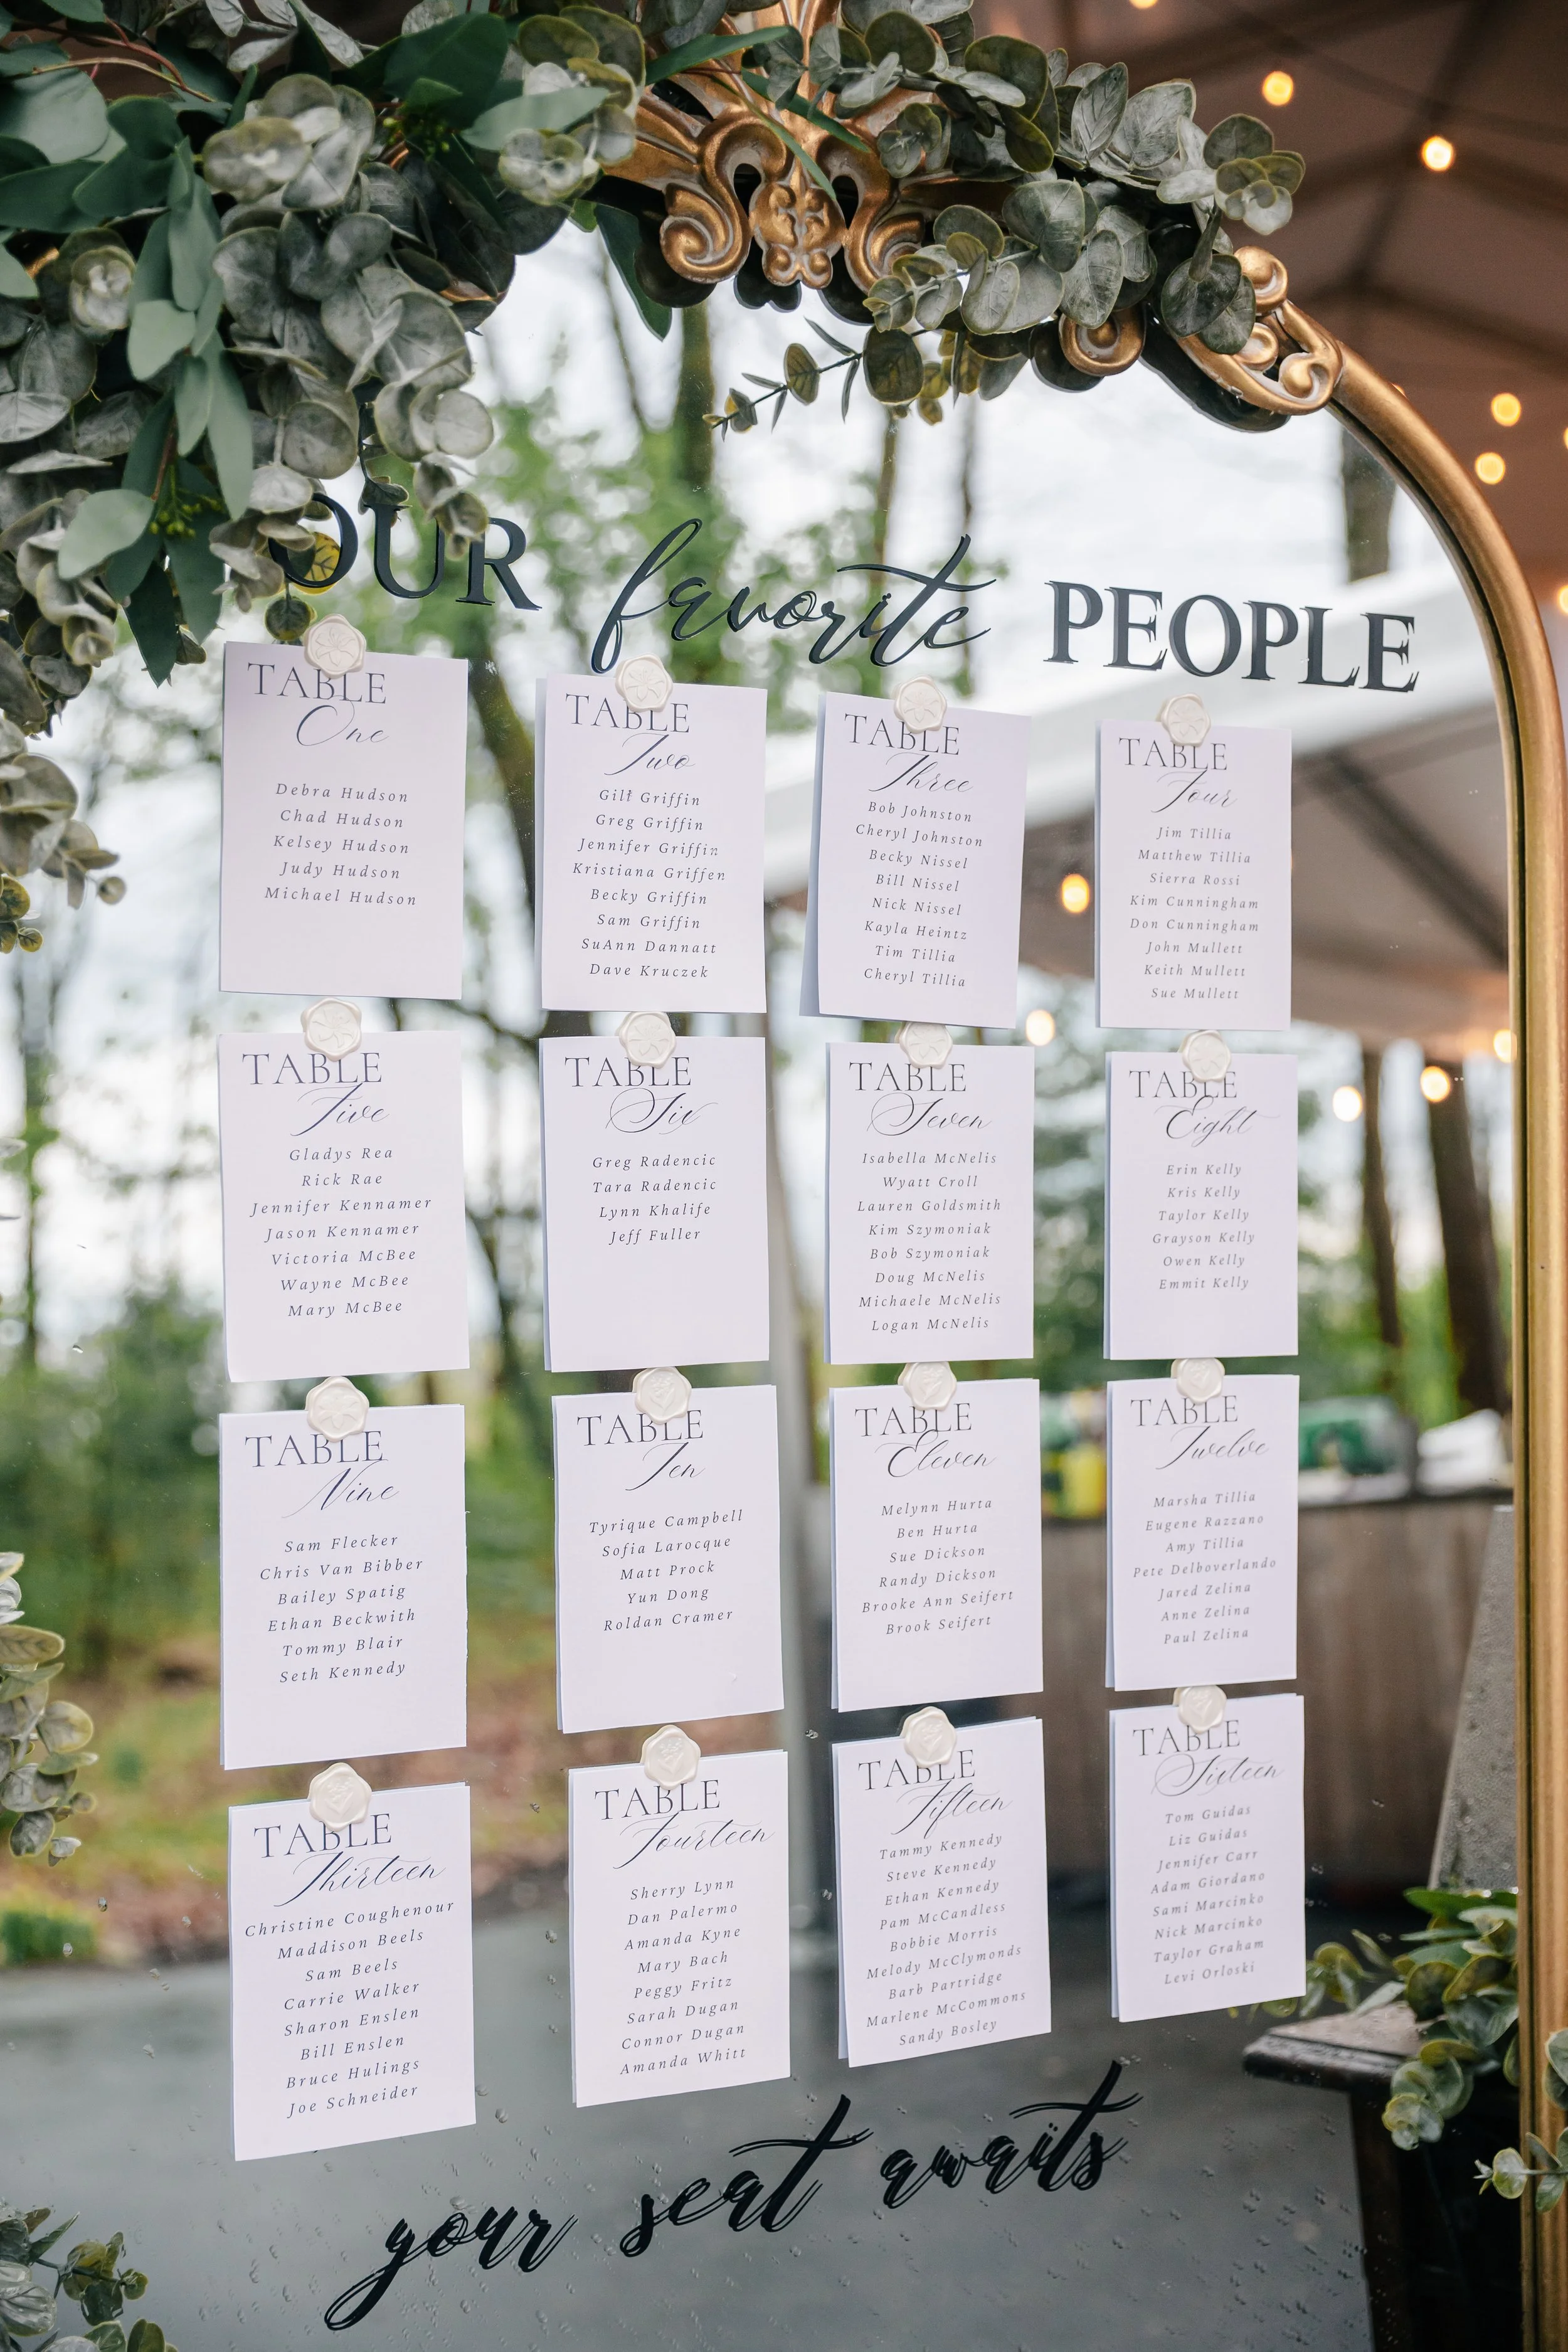 OUR favorite PEOPLE
TABLE
One
Debra Hudson
Chad Hudson
Kelsey Hudson
Judy Hudson
Michael Hudson
TABLE
Two
Gilf Griffin
Greg Griffin
Jennifer Griffin
Kristiana Griffen
Becky Griffin
Sam Griffin
SuAnn Dannatt
Dave Kruczek
TABLE
Three
Bob Johnston
Cheryl Johnston
Becky Nissel
Bill Nissel
Nick Nissel
Kayla Heintz
Tim Tillia
Cheryl Tillia
TABLE
Four
Jim Tillia
Matthew Tillia
Sierra Rossi
Kim Cunningham
Don Cunningham
John Mullett
Keith Mullett
Sue Mullett
TABLE
Five
Gladys Rea
Rick Rae
Jennifer Kennamer
Jason Kennamer
Victoria McBee
Wayne McBee
Mary McBee
TABLE
Six
Greg Radencic
Tara Radencic
Lynn Khalife
Jeff Fuller
TABLE
Seven
Isabella McNelis
Wyatt Croll
Lauren Goldsmith
Kim Szymoniak
Bob Szymoniak
Doug McNelis
Michaele McNelis
Logan McNelis
TABLE
Eight
Erin Kelly
Kris Kelly
Taylor Kelly
Grayson Kelly
Owen Kelly
Emmit Kelly
TABLE
Nine
Sam Flecker
Chris Van Bibber
Bailey Spatig
Ethan Beckwith
Tommy Blair
Seth Kennedy
TABLE
Ten
Tyrique Campbell
Sofia Larocque
Matt Prock
Yun Dong
Roldan Cramer
TABLE
Eleven
Melynn Hurta
Ben Hurta
Sue Dickson
Randy Dickson
Brooke Ann Seifert
Brook Seifert
TABLE
Twelve
Marsha Tillia
Eugene Razzano
Amy Tillia
Pete Delboverlando
Jared Zelina
Anne Zelina
Paul Zelina
TABLE
Thirteen
Christine Coughenour
Maddison Beels
Sam Beels
Carrie Walker
Sharon Enslen
Bill Enslen
Bruce Hulings
Joe Schneider
TABLE
Fourteen
Sherry Lynn
Dan Palermo
Amanda Kyne
Mary Bach
Peggy Fritz
Sarah Dugan
Connor Dugan
Amanda Whitt
TABLE
Fifteen
Tammy Kennedy
Steve Kennedy
Ethan Kennedy
Pam McCandless
Bobbie Morris
Melody McClymonds
Barb Partridge
Marlene McCommons
Sandy Bosley
TABLE
Sixteen
Tom Guidas
Liz Guidas
Jennifer Carr
Adam Giordano
Sami Marcinko
Nick Marcinko
Taylor Graham
Levi Orloski
your seat awaits